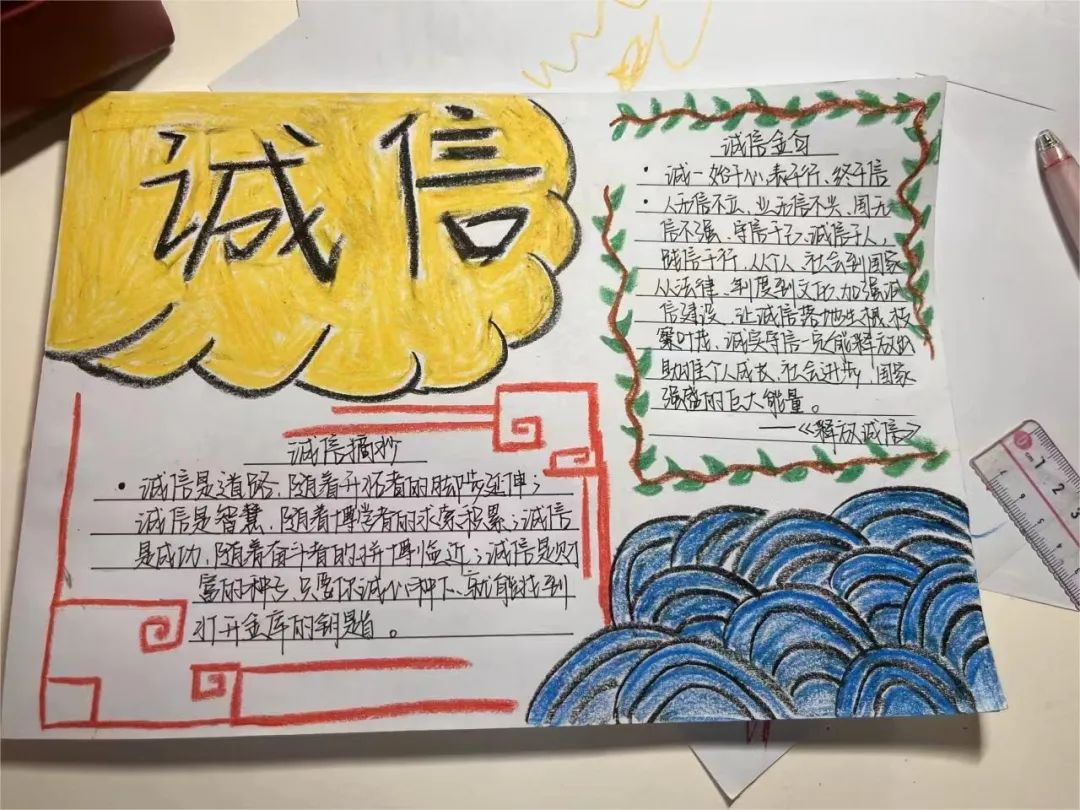 诚信
诚信金句
· 诚一始于心、表于行、终于信
· 人无信不立、业无信不兴、国无
信不强、守信于己、诚信于人，
践信于行，从个人、社会到国家
从法律、制度到文化，加强诚
信建设，让诚信落地生根、枝
繁叶茂，诚实守信一定能释放出
助推个人成长、社会进步、国家
强盛的巨大能量。
——《释放诚信》
诚信摘抄
· 诚信是道路，随着开拓者的脚步延伸；
诚信是智慧，随着博学者的求索积累；诚信
是成功，随着奋斗者的拼搏临近；诚信是财
富的种子，只要你诚心种下，就能找到
打开金库的钥匙。
1
2
3